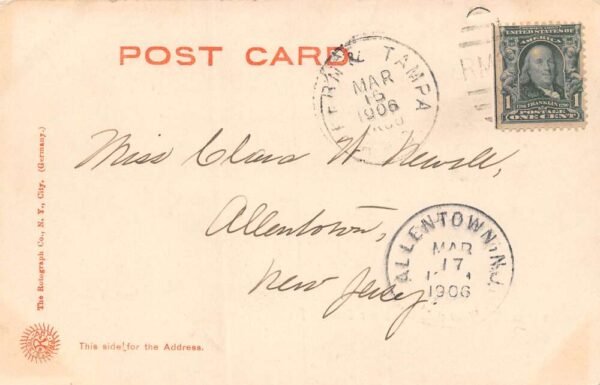 POST CARD
& TAMPA
MAR
1906
UNITED STATES OF AMERICA
1 1
POSTAGE
ONE CENT
Miss Clara W Newell,
Allentown,
New Jersey.
ALLENTOWN, N.J.
MAR
17
1906
The Rotograph Co., N. Y., City. (Germany.)
This side for the Address.